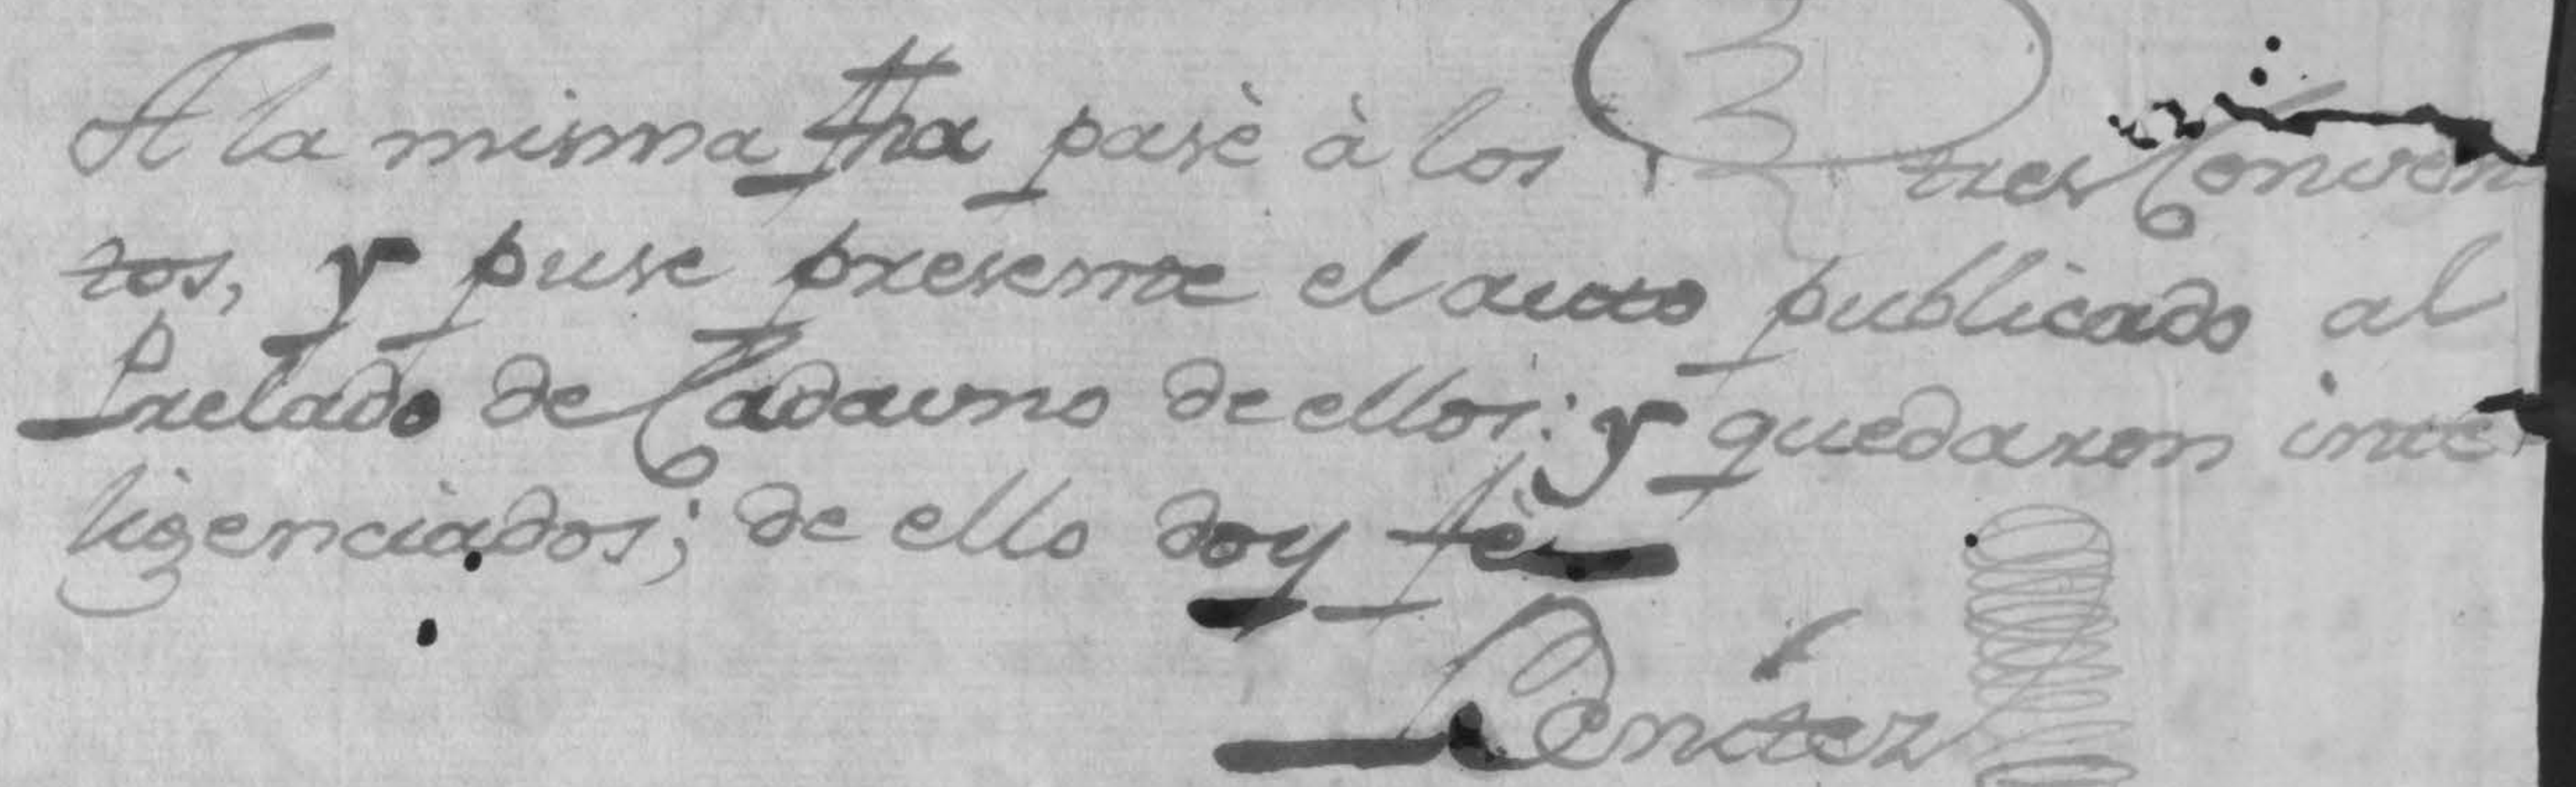 A la misma fha pasè à los tres Conven
tos, y puse presente el auto publicado al
Prelado de Cadauno de ellos: y quedaron inte
ligenciados; de ello doy fè
Benitez